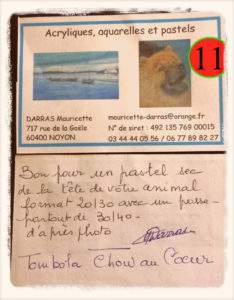 Acryliques, aquarelles et pastels
11
DARRAS Mauricette
717 rue de la Goële
60400 NOYON
mauricette-darras@orange.fr
N° de siret : 492 135 769 00015
03 44 44 05 56 / 06 77 89 82 27
Bon pour un pastel sec
de la tête de votre animal
format 20/30 avec un passe-
partout de 30/40 -
d'après photo
Tombola Chow au Coeur